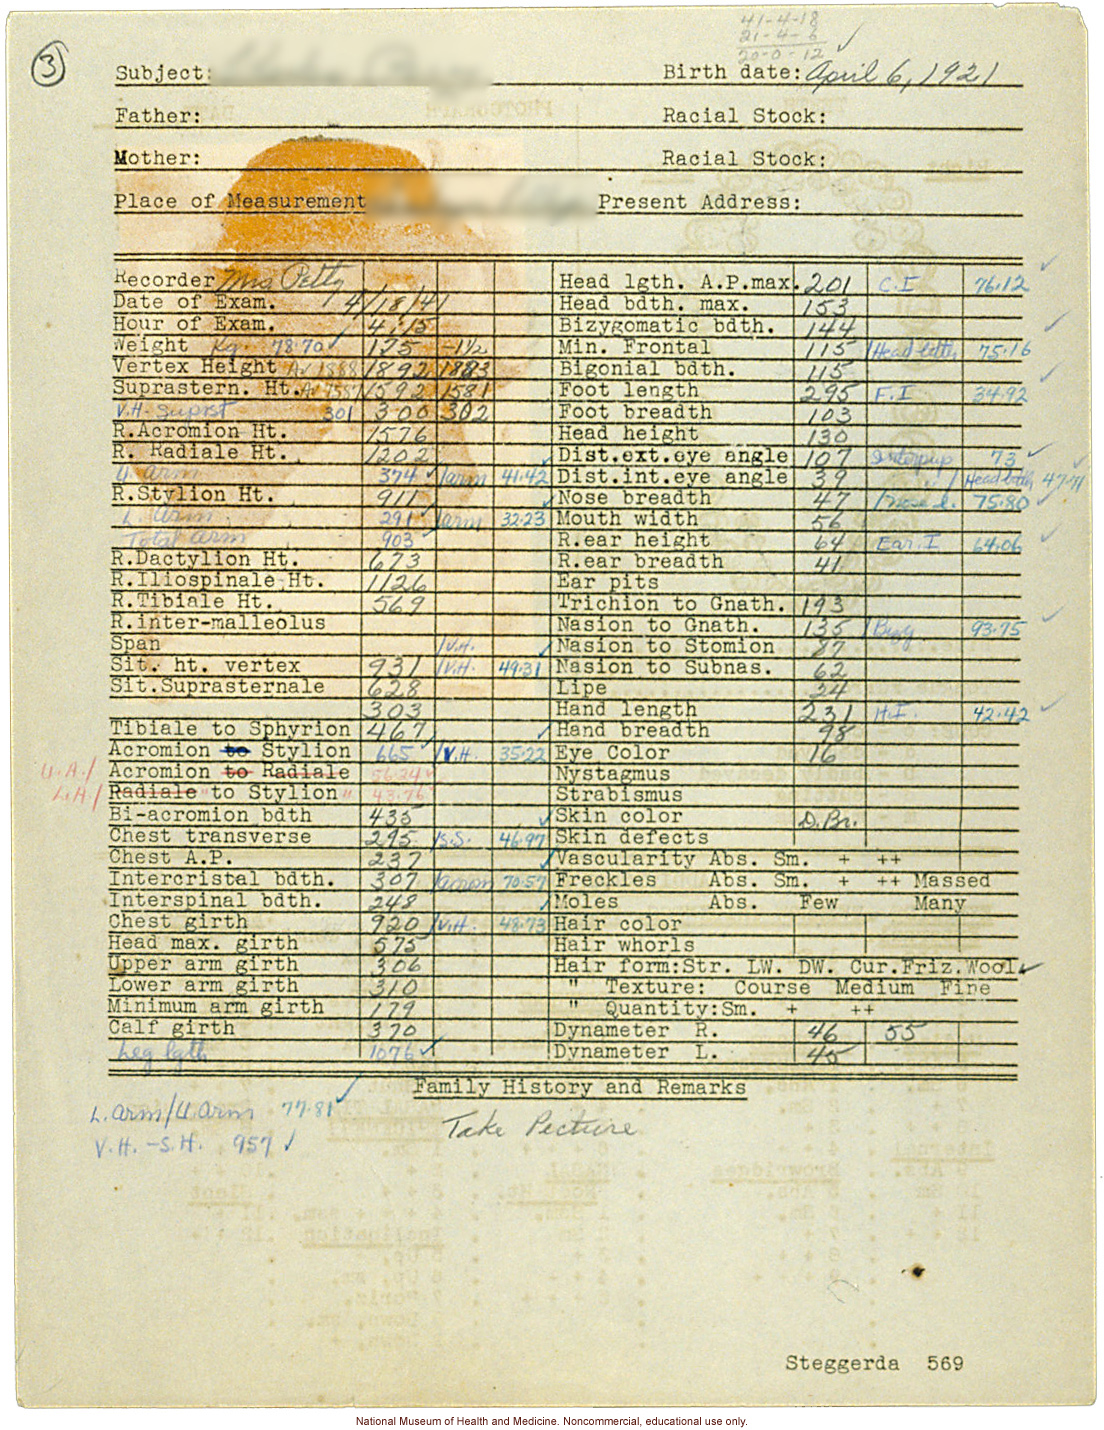 41-4-18
21-4-6
20-0-12 ✓
3
Subject: Birth date: April 6, 1921
Father: Racial Stock:
Mother: Racial Stock:
Place of Measurement Present Address:
Recorder Mrs Petty
Date of Exam. 4/18/41
Hour of Exam. 4:15
Weight Kg. 78.70 ✓ 175 -1½
Vertex Height Av 1888 1892 1883
Suprastern. Ht. Av 1587 1592 1581
V.H. Suprst 301 300 302
R.Acromion Ht. 1576
R. Radiale Ht. 1202
U. arm 374 ✓ /arm 41.42
R.Stylion Ht. 911
L. arm 291 ✓ /arm 32.23
Total arm 903
R.Dactylion Ht. 673
R.Iliospinale Ht. 1126
R.Tibiale Ht. 569
R.inter-malleolus
Span /V.H.
Sit. ht. vertex 931 /V.H. 49.31
Sit.Suprasternale 628
303
Tibiale to Sphyrion 467
Acromion to Stylion 665 /V.H. 35.22
U.A./ Acromion to Radiale 56.24
L.A./ Radiale " to Stylion " 43.76
Bi-acromion bdth 435
Chest transverse 295 /S.S. 46.97
Chest A.P. 237
Intercristal bdth. 307 /acrom 70.57
Interspinal bdth. 248
Chest girth 920 /V.H. 48.73
Head max. girth 575
Upper arm girth 306
Lower arm girth 310
Minimum arm girth 179
Calf girth 370
Leg lgth 1076 ✓
Head lgth. A.P.max. 201 C.I 76.12 ✓
Head bdth. max. 153
Bizygomatic bdth. 144 ✓
Min. Frontal 115 /Head bdth 75.16
Bigonial bdth. 115 ✓
Foot length 295 F.I 34.92
Foot breadth 103
Head height 130
Dist.ext.eye angle 107 Interpup 73 ✓
Dist.int.eye angle 39 /Head bdth 47.71
Nose breadth 47 /Nose l. 75.80 ✓
Mouth width 56
R.ear height 64 Ear.I 64.06 ✓
R.ear breadth 41
Ear pits
Trichion to Gnath. 193
Nasion to Gnath. 135 /Bizyg. 93.75 ✓
Nasion to Stomion 87
Nasion to Subnas. 62
Lips 24
Hand length 231 H.I. 42.42 ✓
Hand breadth 98
Eye Color 16
Nystagmus
Strabismus
Skin color D.Br.
Skin defects
Vascularity Abs. Sm. + ++
Freckles Abs. Sm. + ++ Massed
Moles Abs. Few Many
Hair color
Hair whorls
Hair form:Str. LW. DW. Cur.Friz.Wool. ✓
" Texture: Course Medium Fine
" Quantity:Sm. + ++
Dynameter R. 46 55
Dynameter L. 45
Family History and Remarks
L. arm/U arm 77.81 ✓
V.H. -S.H. 957 ✓
Take Picture
Steggerda 569
National Museum of Health and Medicine. Noncommercial, educational use only.